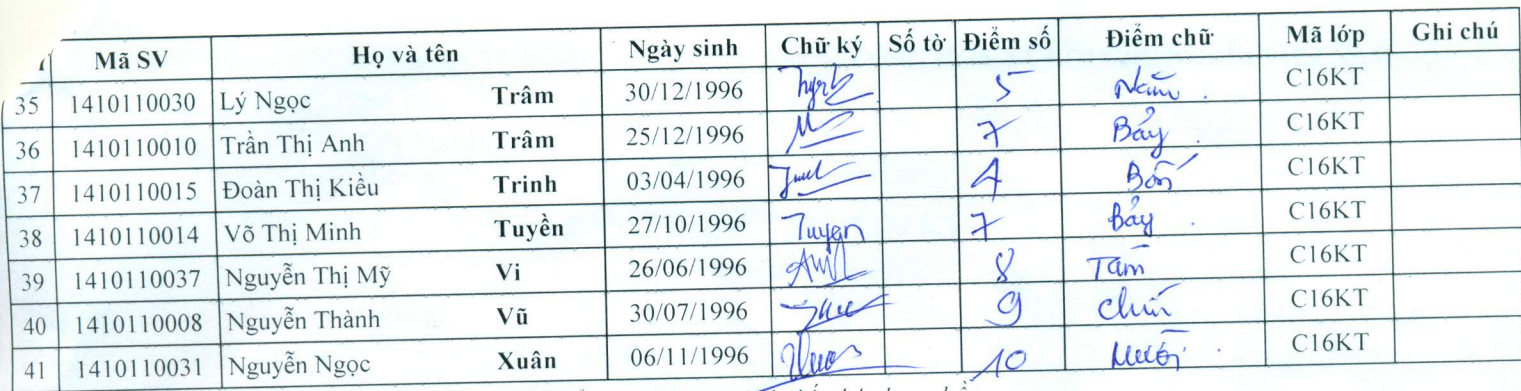 Mã SV Họ và tên Ngày sinh Chữ ký Số tờ Điểm số Điểm chữ Mã lớp Ghi chú
35 1410110030 Lý Ngọc Trâm 30/12/1996 5 Năm. C16KT
36 1410110010 Trần Thị Anh Trâm 25/12/1996 7 Bảy. C16KT
37 1410110015 Đoàn Thị Kiều Trinh 03/04/1996 4 Bốn C16KT
38 1410110014 Võ Thị Minh Tuyền 27/10/1996 Tuyen 7 Bảy. C16KT
39 1410110037 Nguyễn Thị Mỹ Vi 26/06/1996 8 Tám C16KT
40 1410110008 Nguyễn Thành Vũ 30/07/1996 9 Chín C16KT
41 1410110031 Nguyễn Ngọc Xuân 06/11/1996 10 Mười. C16KT